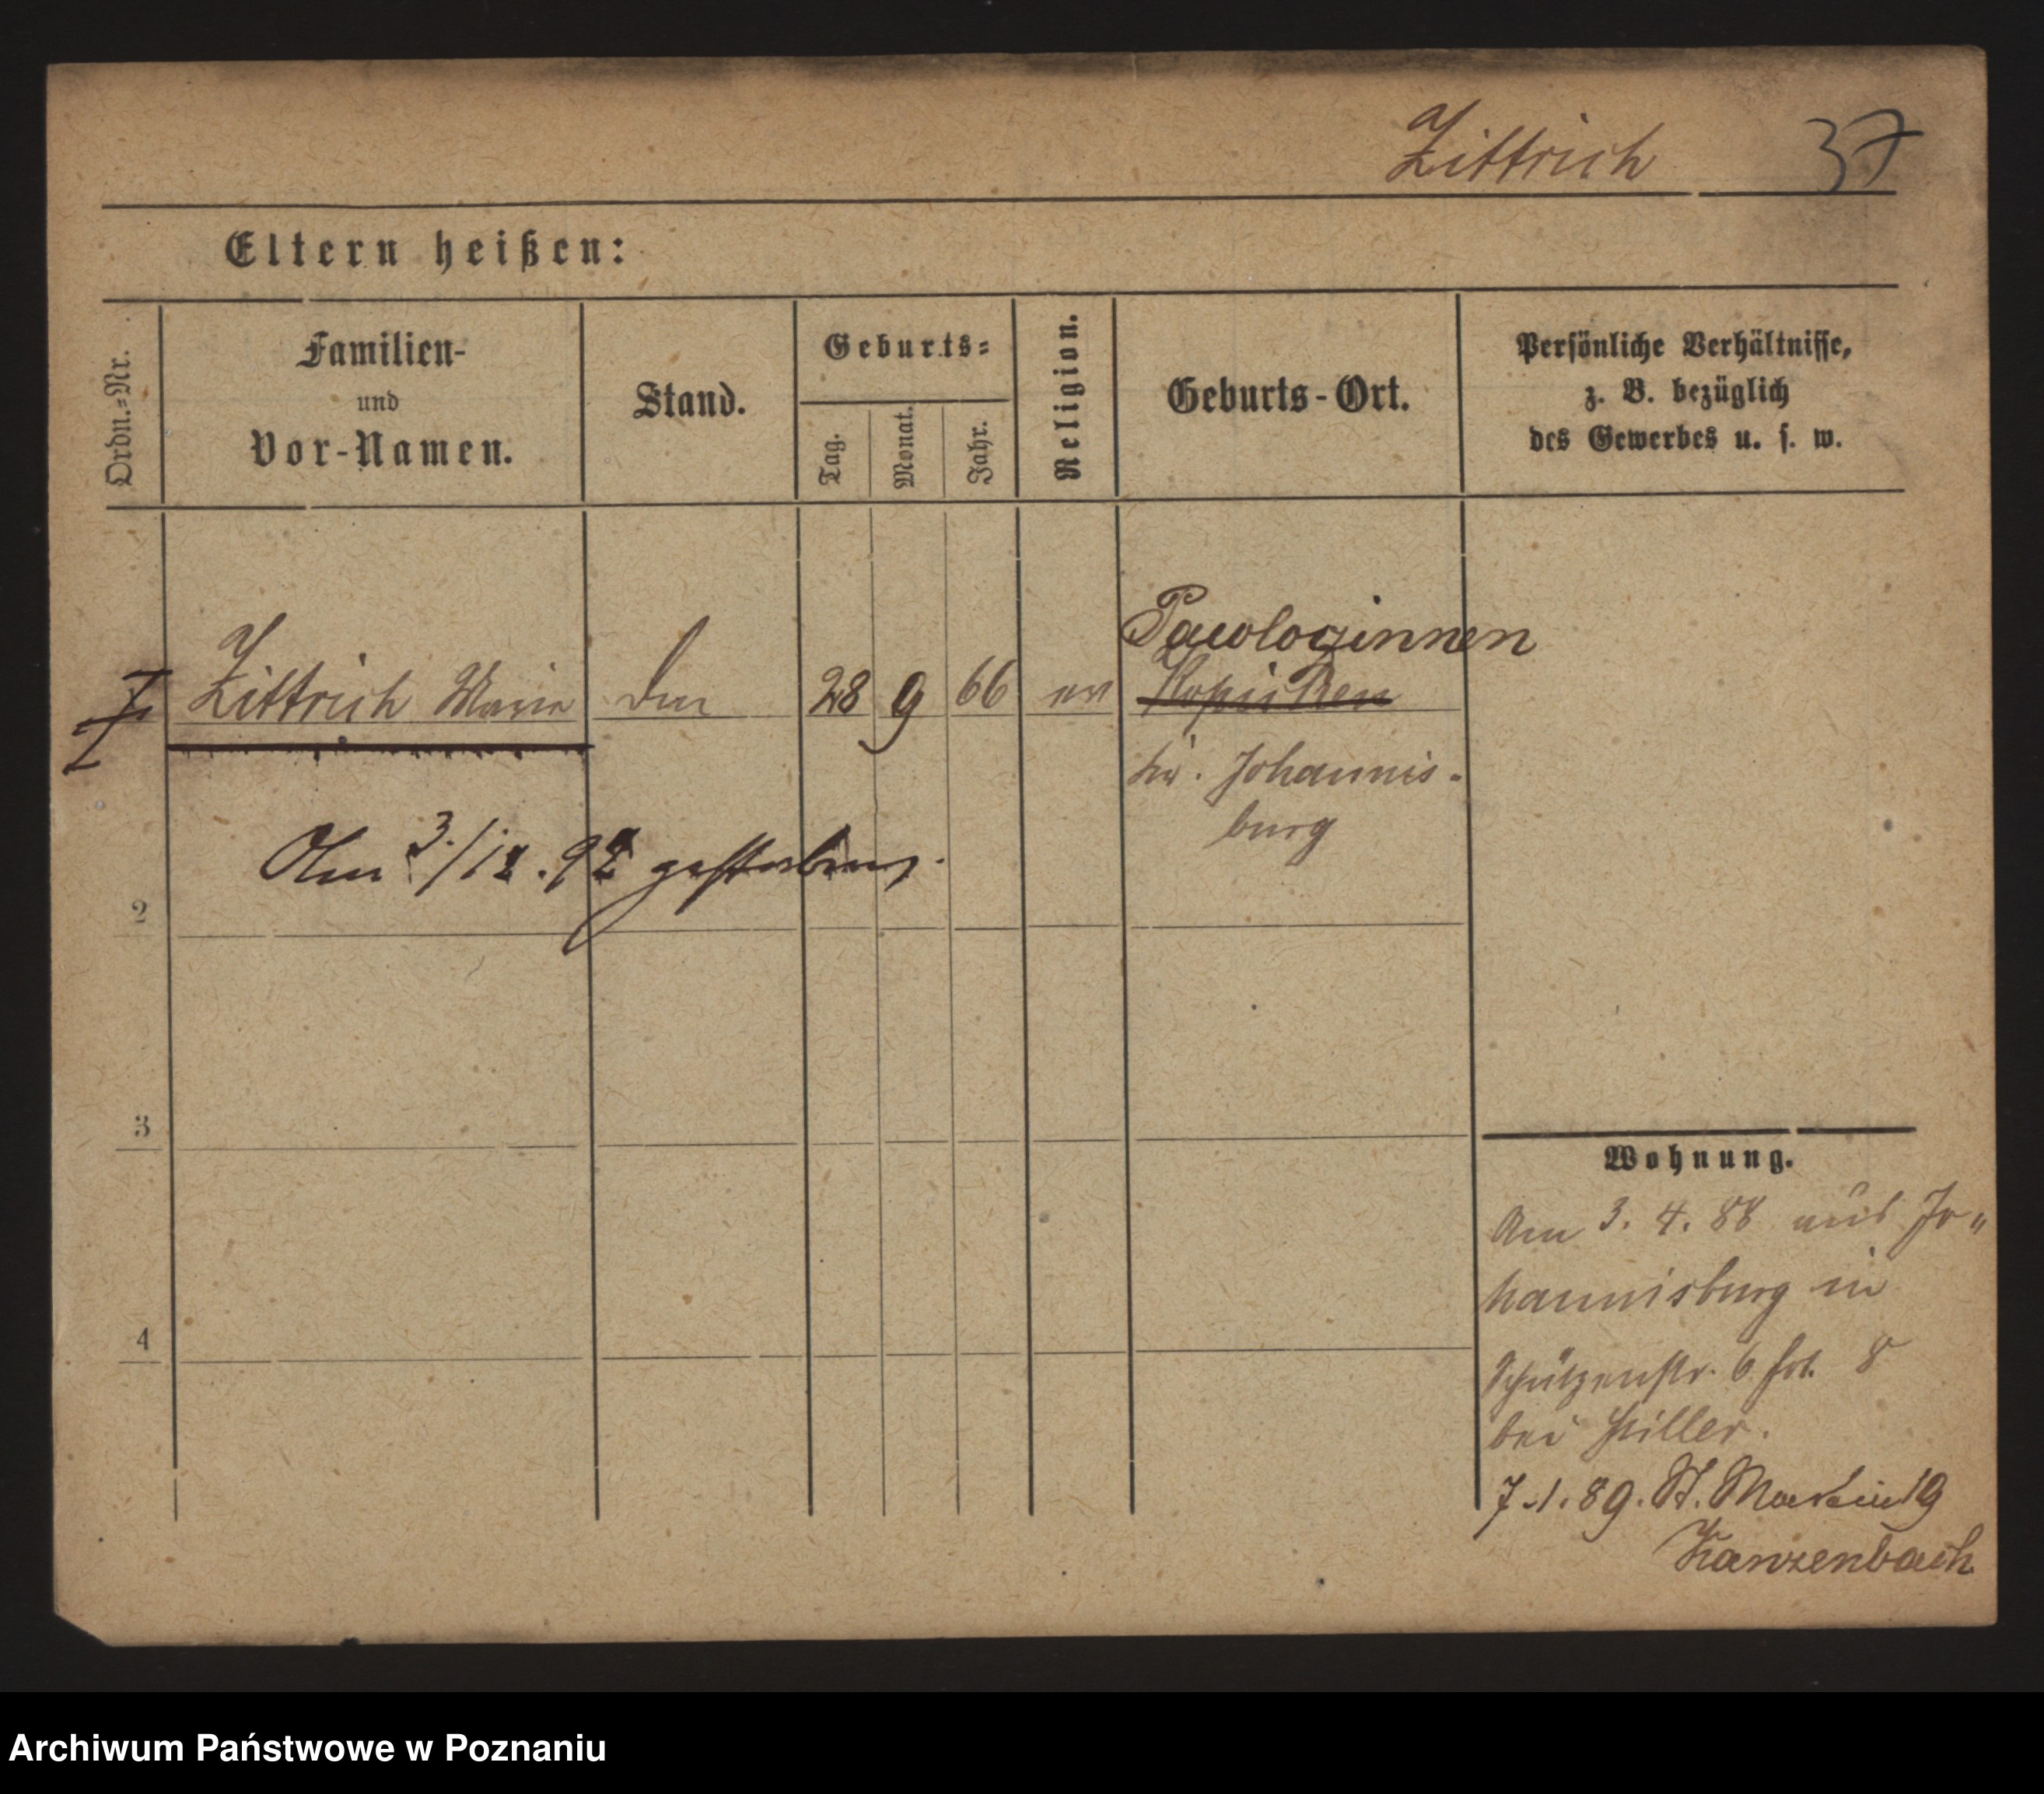 Zittrich 37
Eltern heißen:
Ordn.=Nr.
Familien-
und
Vor-Namen.
Stand.
Geburts=
Tag.
Monat.
Jahr.
Religion.
Geburts-Ort.
Persönliche Verhältnisse,
z. B. bezüglich
des Gewerbes u. s. w.
Pawlozinnen
Zittrich Marie 28 9 66 ev
Kr. Johannis-
burg
Am 3./12.92 gestorben.
2
3
4
Wohnung.
Am 3. 4. 88 aus Jo„
hannisburg in
Schützenstr. 6 8
bei Hiller.
7.1.89. St. Martin 19
Kanzenbach
Archiwum Państwowe w Poznaniu